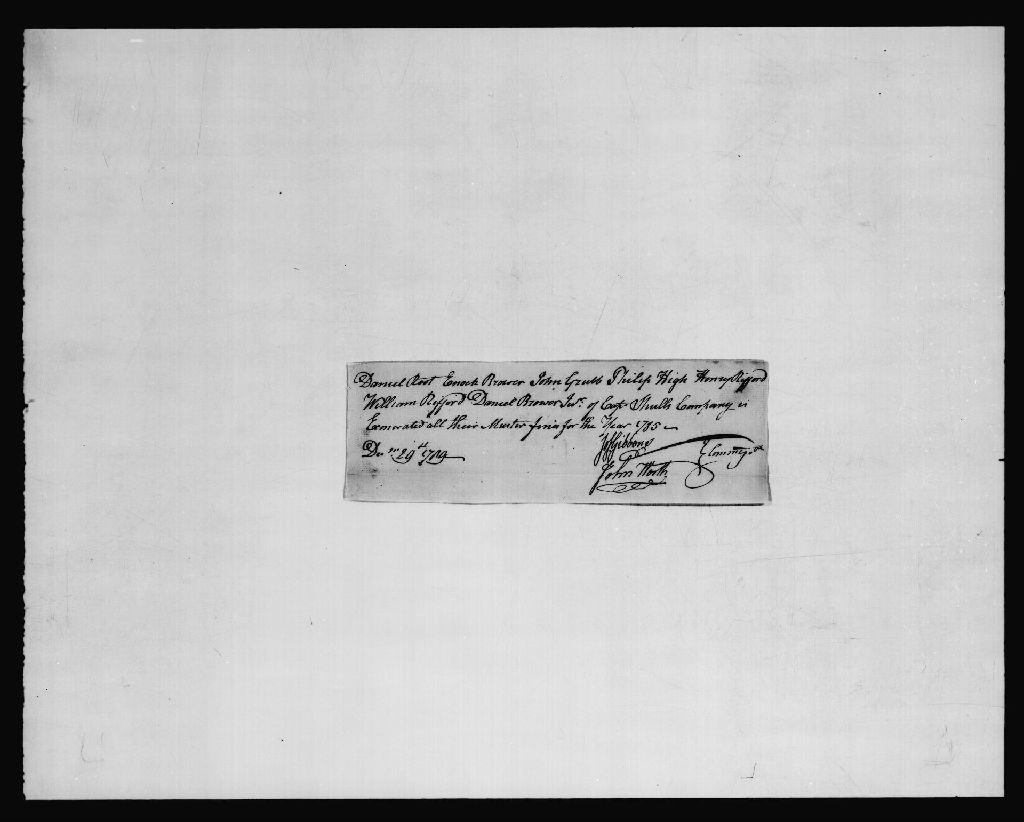 Daniel Root Enoch Brower John Grubb Philip High Henry Rifford
William Rifford Daniel Brower Junr. of Capt Shulls Company is
Exonerated all their Muster fines for the Year 1785
Decr 29th 1789
Gibbons
John Worth